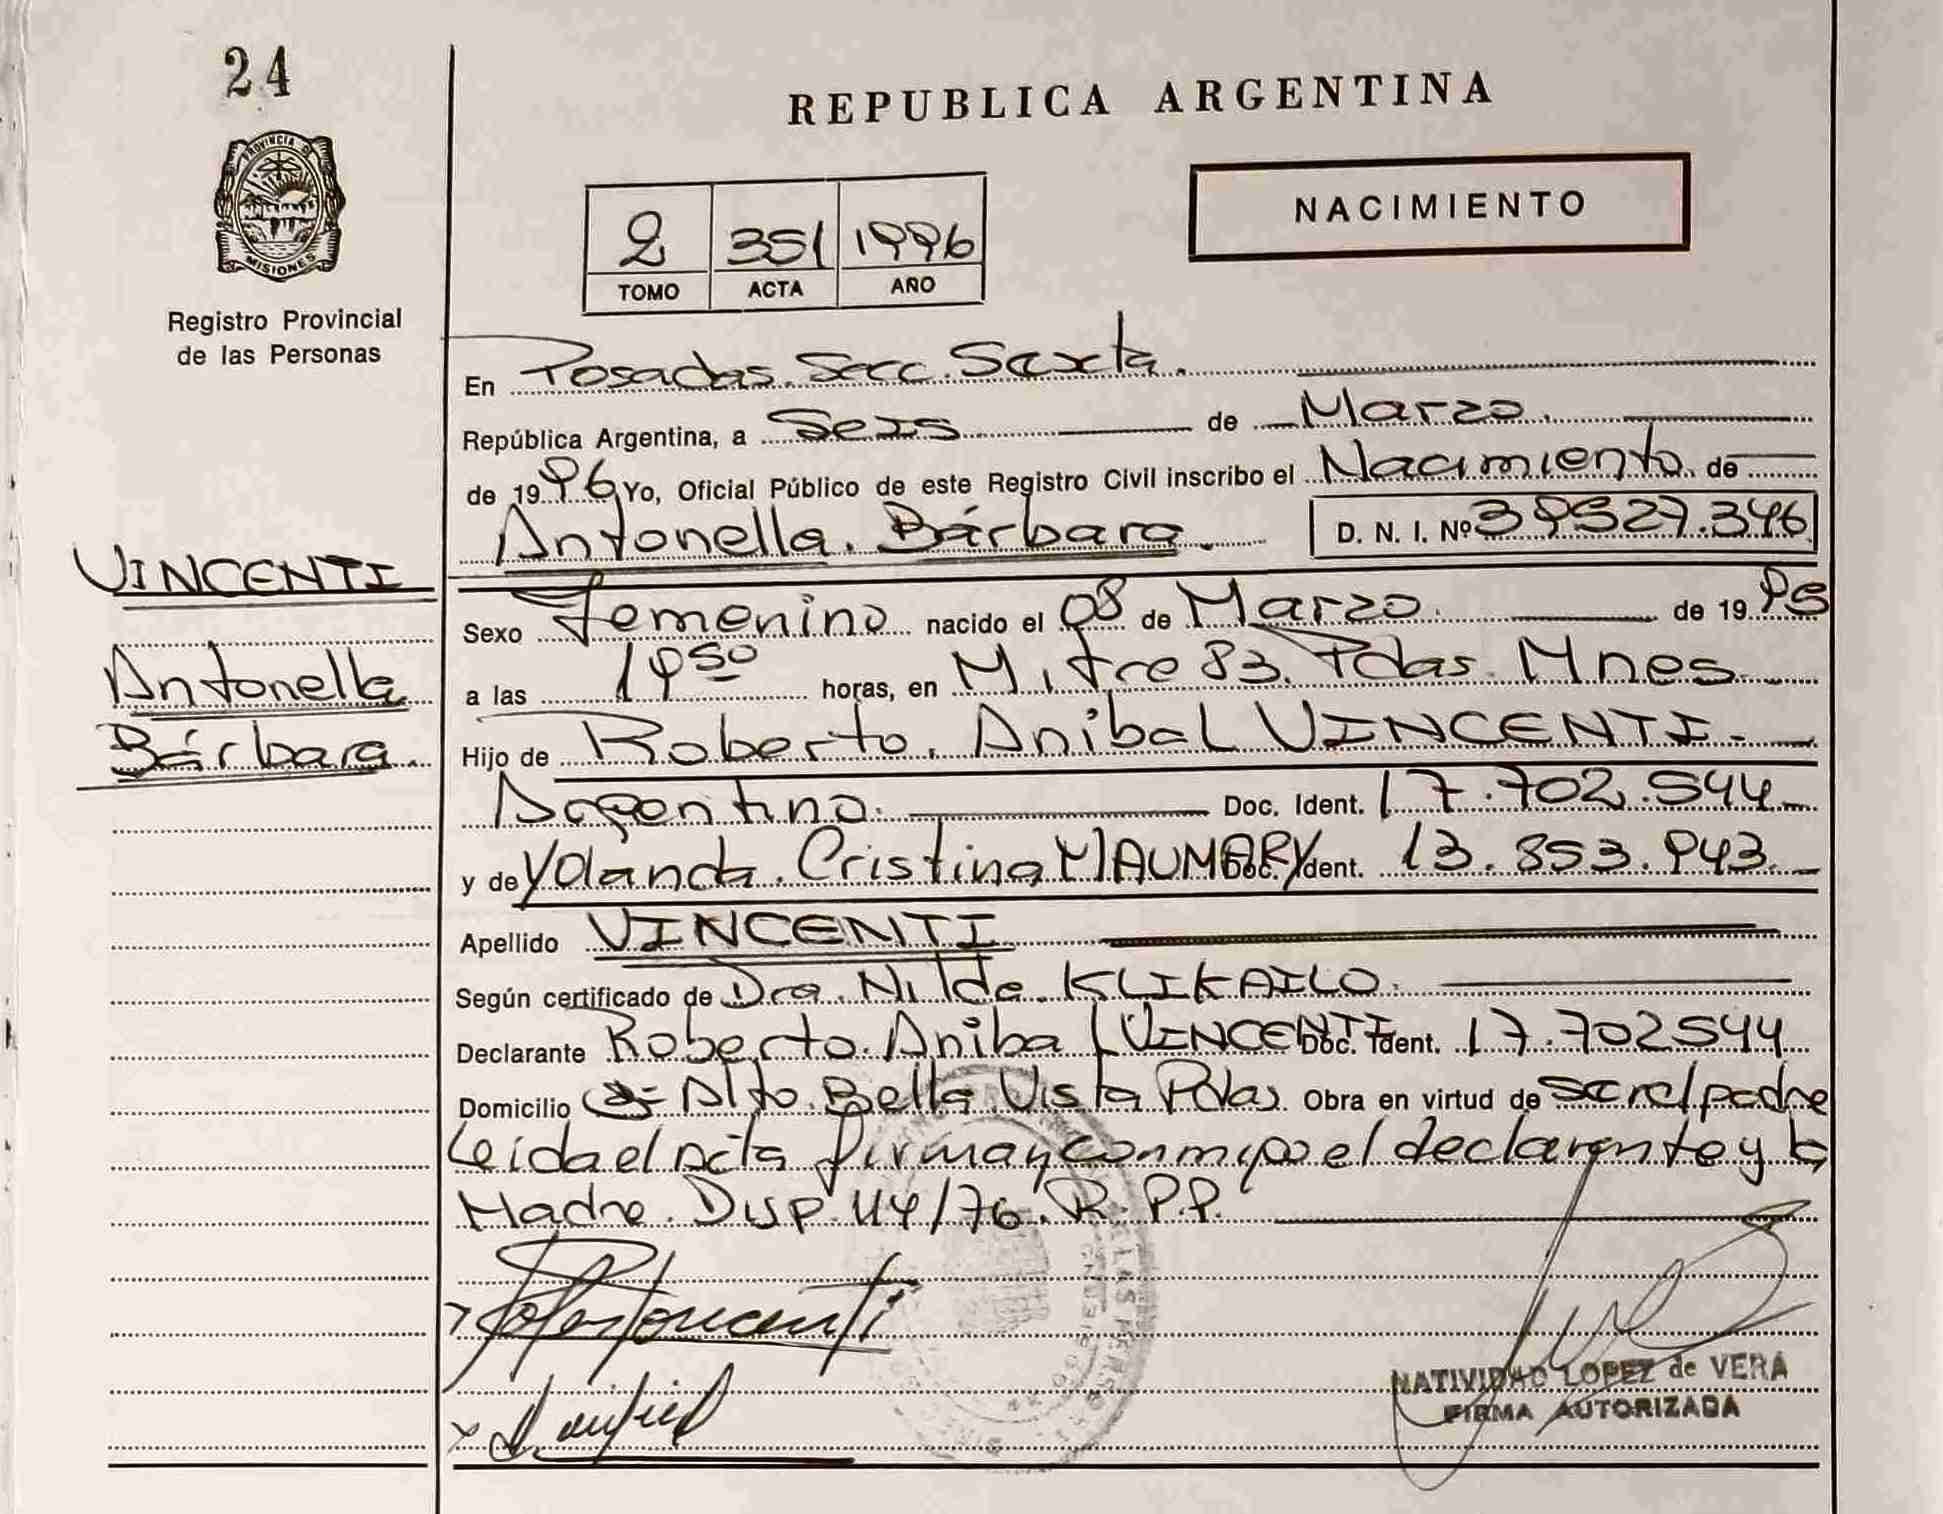 24
REPUBLICA ARGENTINA
PROVINCIA DE
MISIONES
Registro Provincial
de las Personas
2 351 1996
TOMO ACTA AÑO
NACIMIENTO
En Posadas. Secc. Sexta.
República Argentina, a Seis de Marzo.
de 1996 Yo, Oficial Público de este Registro Civil inscribo el Nacimiento de
Antonella. Bárbara. D. N. I. Nº 39527.346
VINCENTI
Antonella
Bárbara.
Sexo Femenino nacido el 08 de Marzo. de 1995
a las 19 50 horas, en Mitre 83. Pdas. Mnes
Hijo de Roberto. Anibal VINCENTI.
Argentino. Doc. Ident. 17.702.544
y de Yolanda. Cristina MAUMARY Doc. Ident. 13.853.943.
Apellido VINCENTI
Según certificado de Dra. Nilda KLIKAILO.
Declarante Roberto. Anibal VINCENTI Doc. Ident. 17.702544
Domicilio Alto. Bella Vista Pdas Obra en virtud de ser el padre
Leida el Acta firman conmigo el declarante y la
Madre. Disp. 44/76. R. P.P.
NATIVIDAD LOPEZ de VERA
FIRMA AUTORIZADA